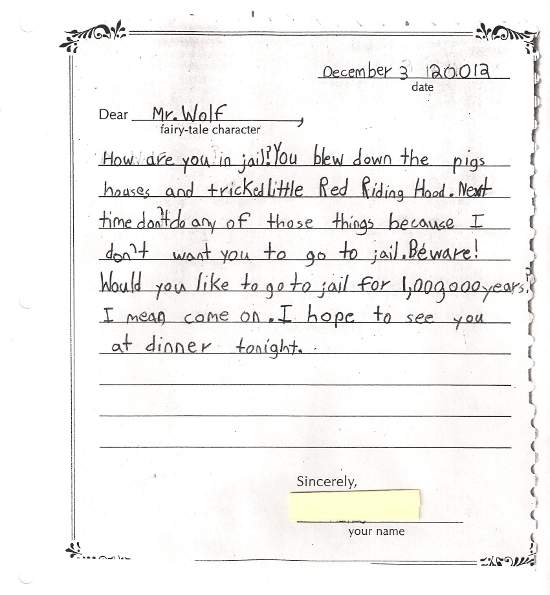 December 3 120012
date
Dear Mr. Wolf,
fairy-tale character
How are you in jail? You blew down the pigs
houses and tricked Little Red Riding Hood. Next
time don't do any of those things because I
don't want you to go to jail. Beware!
Would you like to go to jail for 1,000,000 years?
I mean come on. I hope to see you
at dinner tonight.
Sincerely,
your name